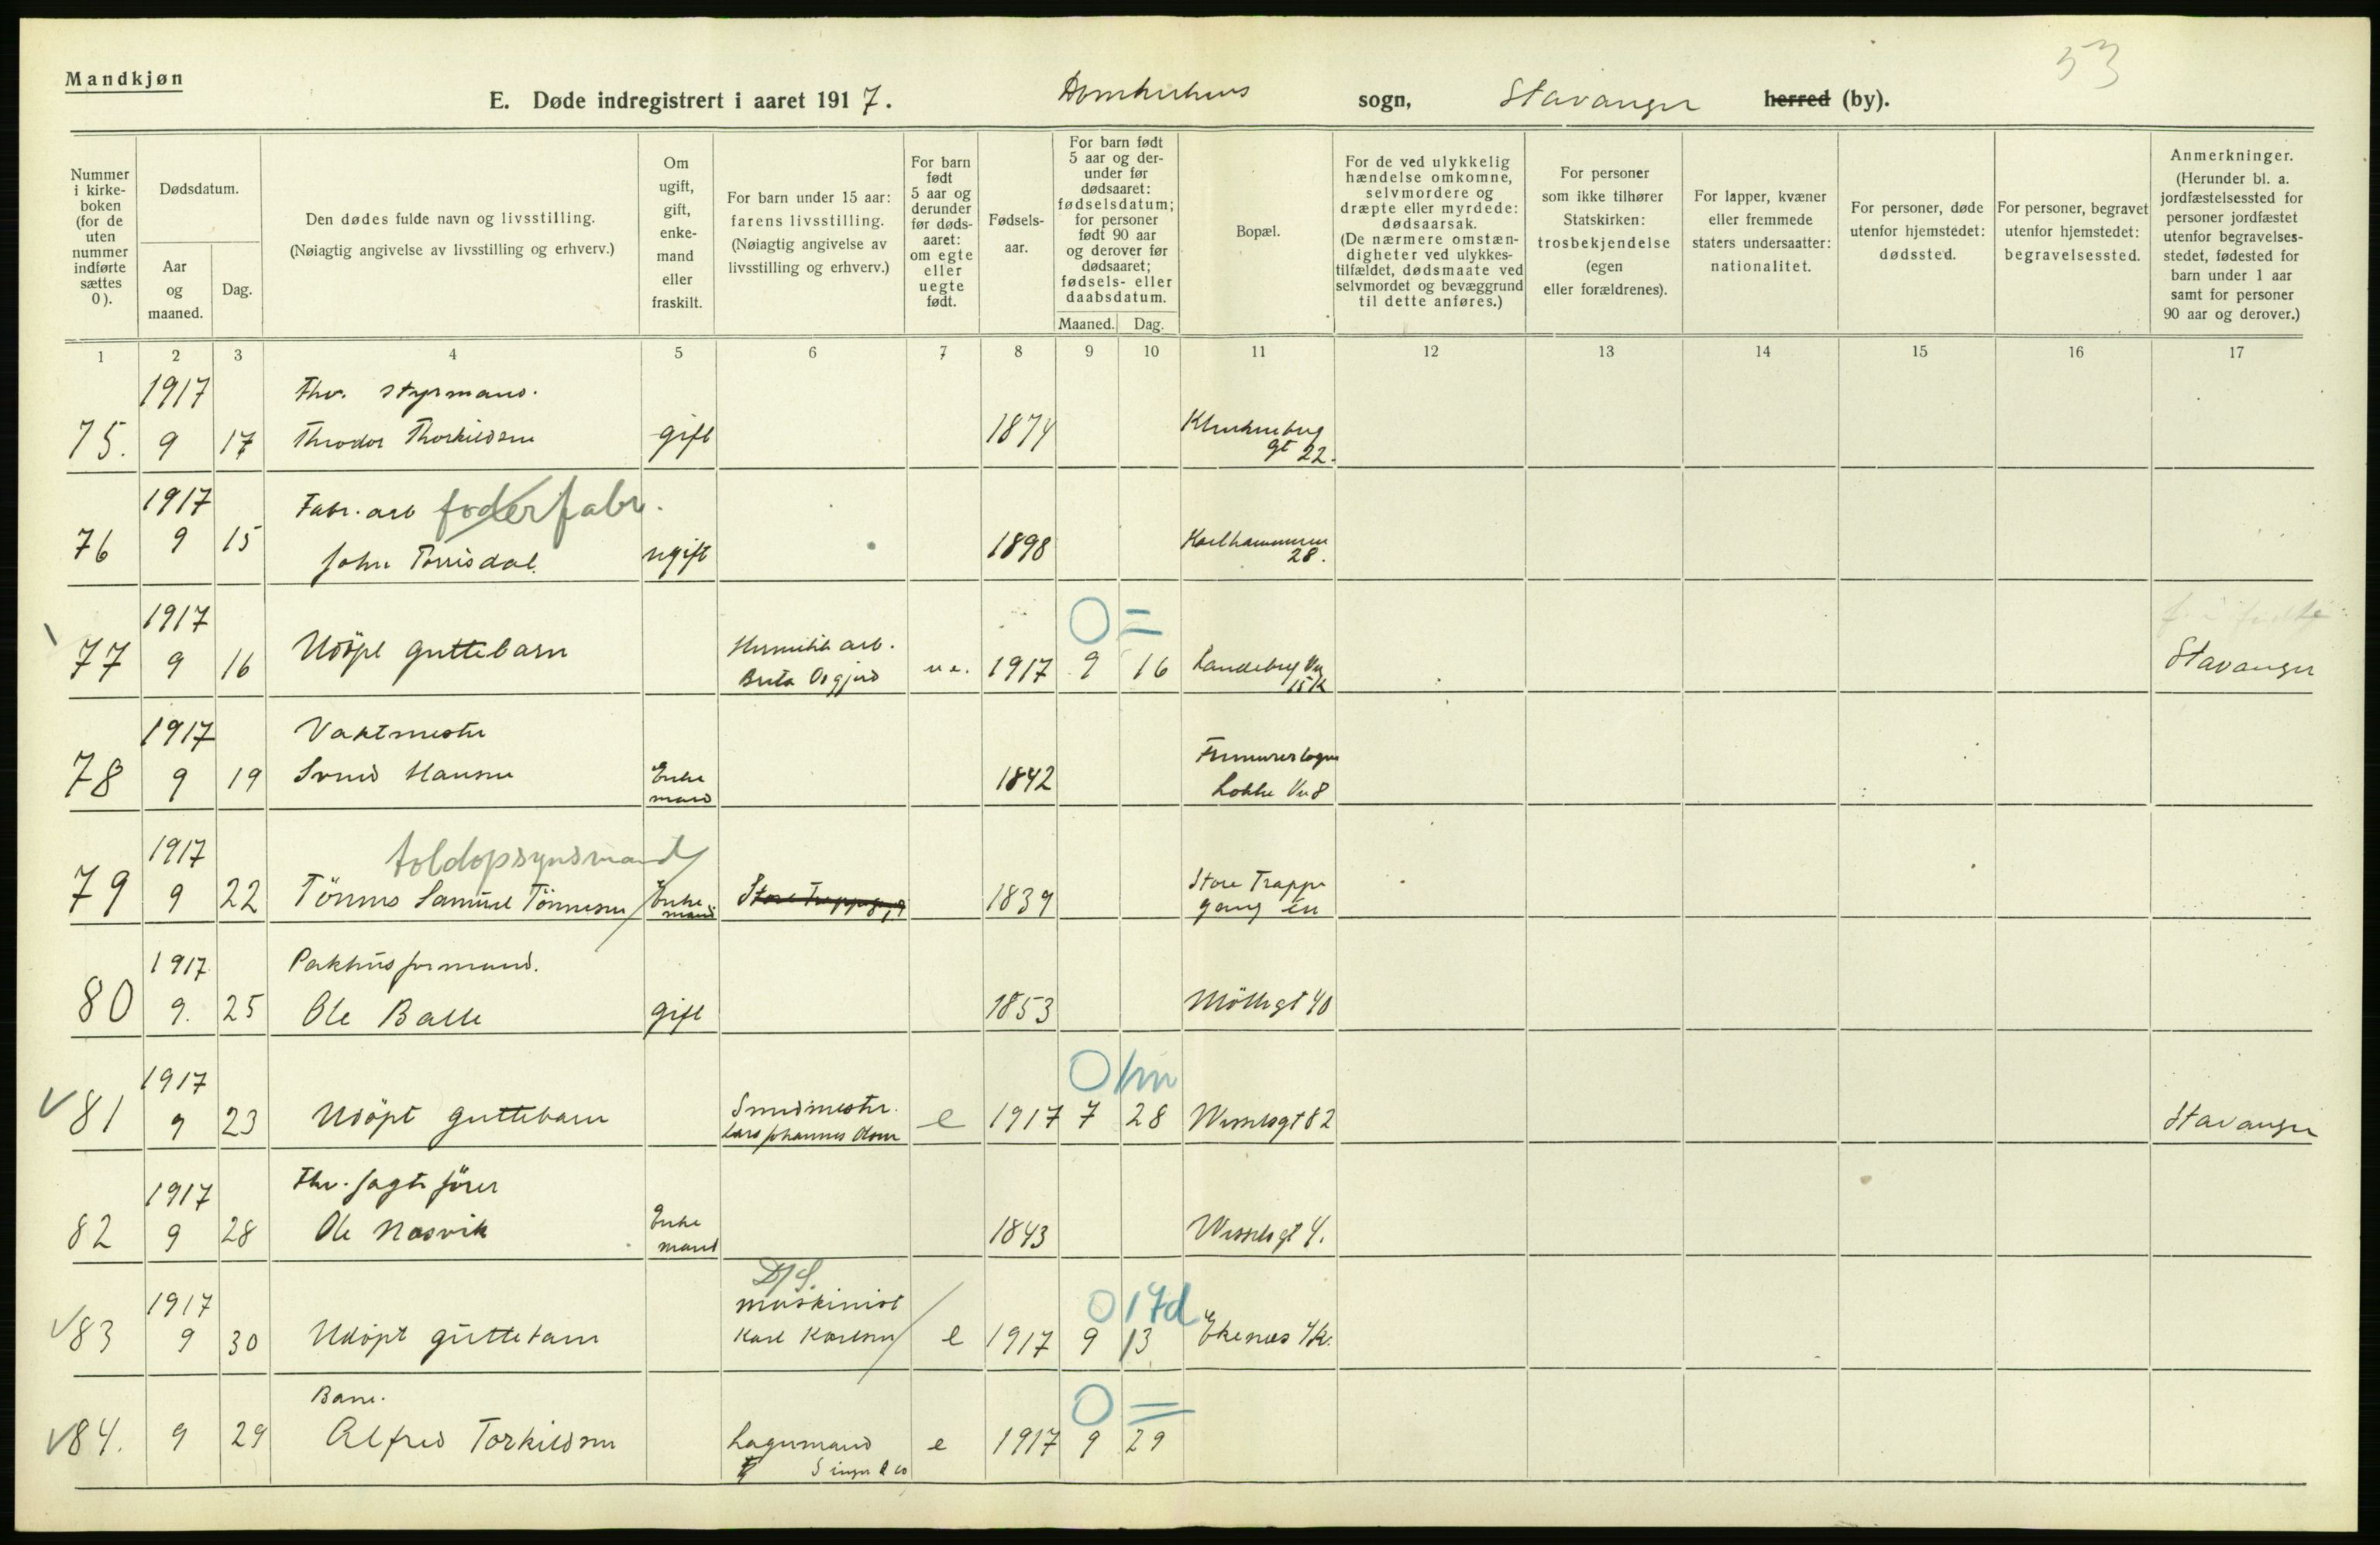 53
Mandkjøn
E. Døde indregistrert i aaret 1917. Domkirkens sogn, Stavanger herred (by).
Nummer i kirke-boken (for de uten nummer indførte sættes 0).
Dødsdatum.
Aar og maaned.
Dag.
Den dødes fulde navn og livsstilling.
(Nøiagtig angivelse av livsstilling og erhverv.)
Om ugift, gift, enke-mand eller fraskilt.
For barn under 15 aar: farens livsstilling. (Nøiagtig angivelse av livsstilling og erhverv.)
For barn født 5 aar og derunder før døds-aaret: om egte eller uegte født.
Fødsels-aar.
For barn født 5 aar og der-under før dødsaaret: fødselsdatum; for personer født 90 aar og derover før dødsaaret; fødsels- eller daabsdatum.
Maaned. Dag.
Bopæl.
For de ved ulykkelig hændelse omkomne, selvmordere og dræpte eller myrdede: dødsaarsak. (De nærmere omstæn-digheter ved ulykkes-tilfældet, dødsmaate ved selvmordet og bevæggrund til dette anføres.)
For personer som ikke tilhører Statskirken: trosbekjendelse (egen eller forældrenes).
For lapper, kvæner eller fremmede staters undersaatter: nationalitet.
For personer, døde utenfor hjemstedet: dødssted.
For personer, begravet utenfor hjemstedet: begravelsessted.
Anmerkninger. (Herunder bl. a. jordfæstelsessted for personer jordfæstet utenfor begravelses-stedet, fødested for barn under 1 aar samt for personer 90 aar og derover.)
1 2 3 4 5 6 7 8 9 10 11 12 13 14 15 16 17
1917 Fhv. styrmand.
75. 9 17 Theodor Thorkildsen gift 1874 gt 22.
1917 Fabr. arb foderfabr.
76 9 15 John Torrisdal. ugift 1898 28.
1917 O =
77 9 16 Udöpt guttebarn arb. u e. 1917 9 16 Stavanger
1917 Vaktmester
78 9 19 Svend Hansen Enke mand 1842 Lokke Vn 8
1917 toldopsynsmand
79 9 22 Tönnes Samuel Tönnesen Enke mand 1839 Store Trappe gang
1917 Pakhusformand.
80 9. 25 Ole Balle gift 1853 Möllegt 40
1917 O 1m
81 9 23 Udöpt guttebarn Smedmester. Lars Johannes e 1917 7 28 Wesselsgt 82 Stavanger
1917 Fhv. jagtefören
82 9 28 Ole Nasvik Enke mand 1843 Wesselsgt 4.
1917 D/S. maskinist O 17d
83 9 30 Udöpt guttebarn Karl Karlsen e 1917 9 13 Ekenes
Barn. O =
84. 9 29 Alfred Torkildsen Lagermand Singer & Co e 1917 9 29